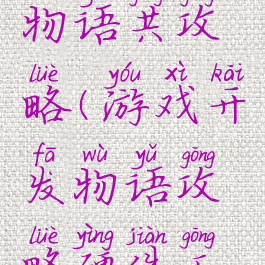 物语共攻
lüè yóu xì kāi
略(游戏开
fā wù yǔ gōng
发物语攻
lüè yìng jiàn gōng
略硬件